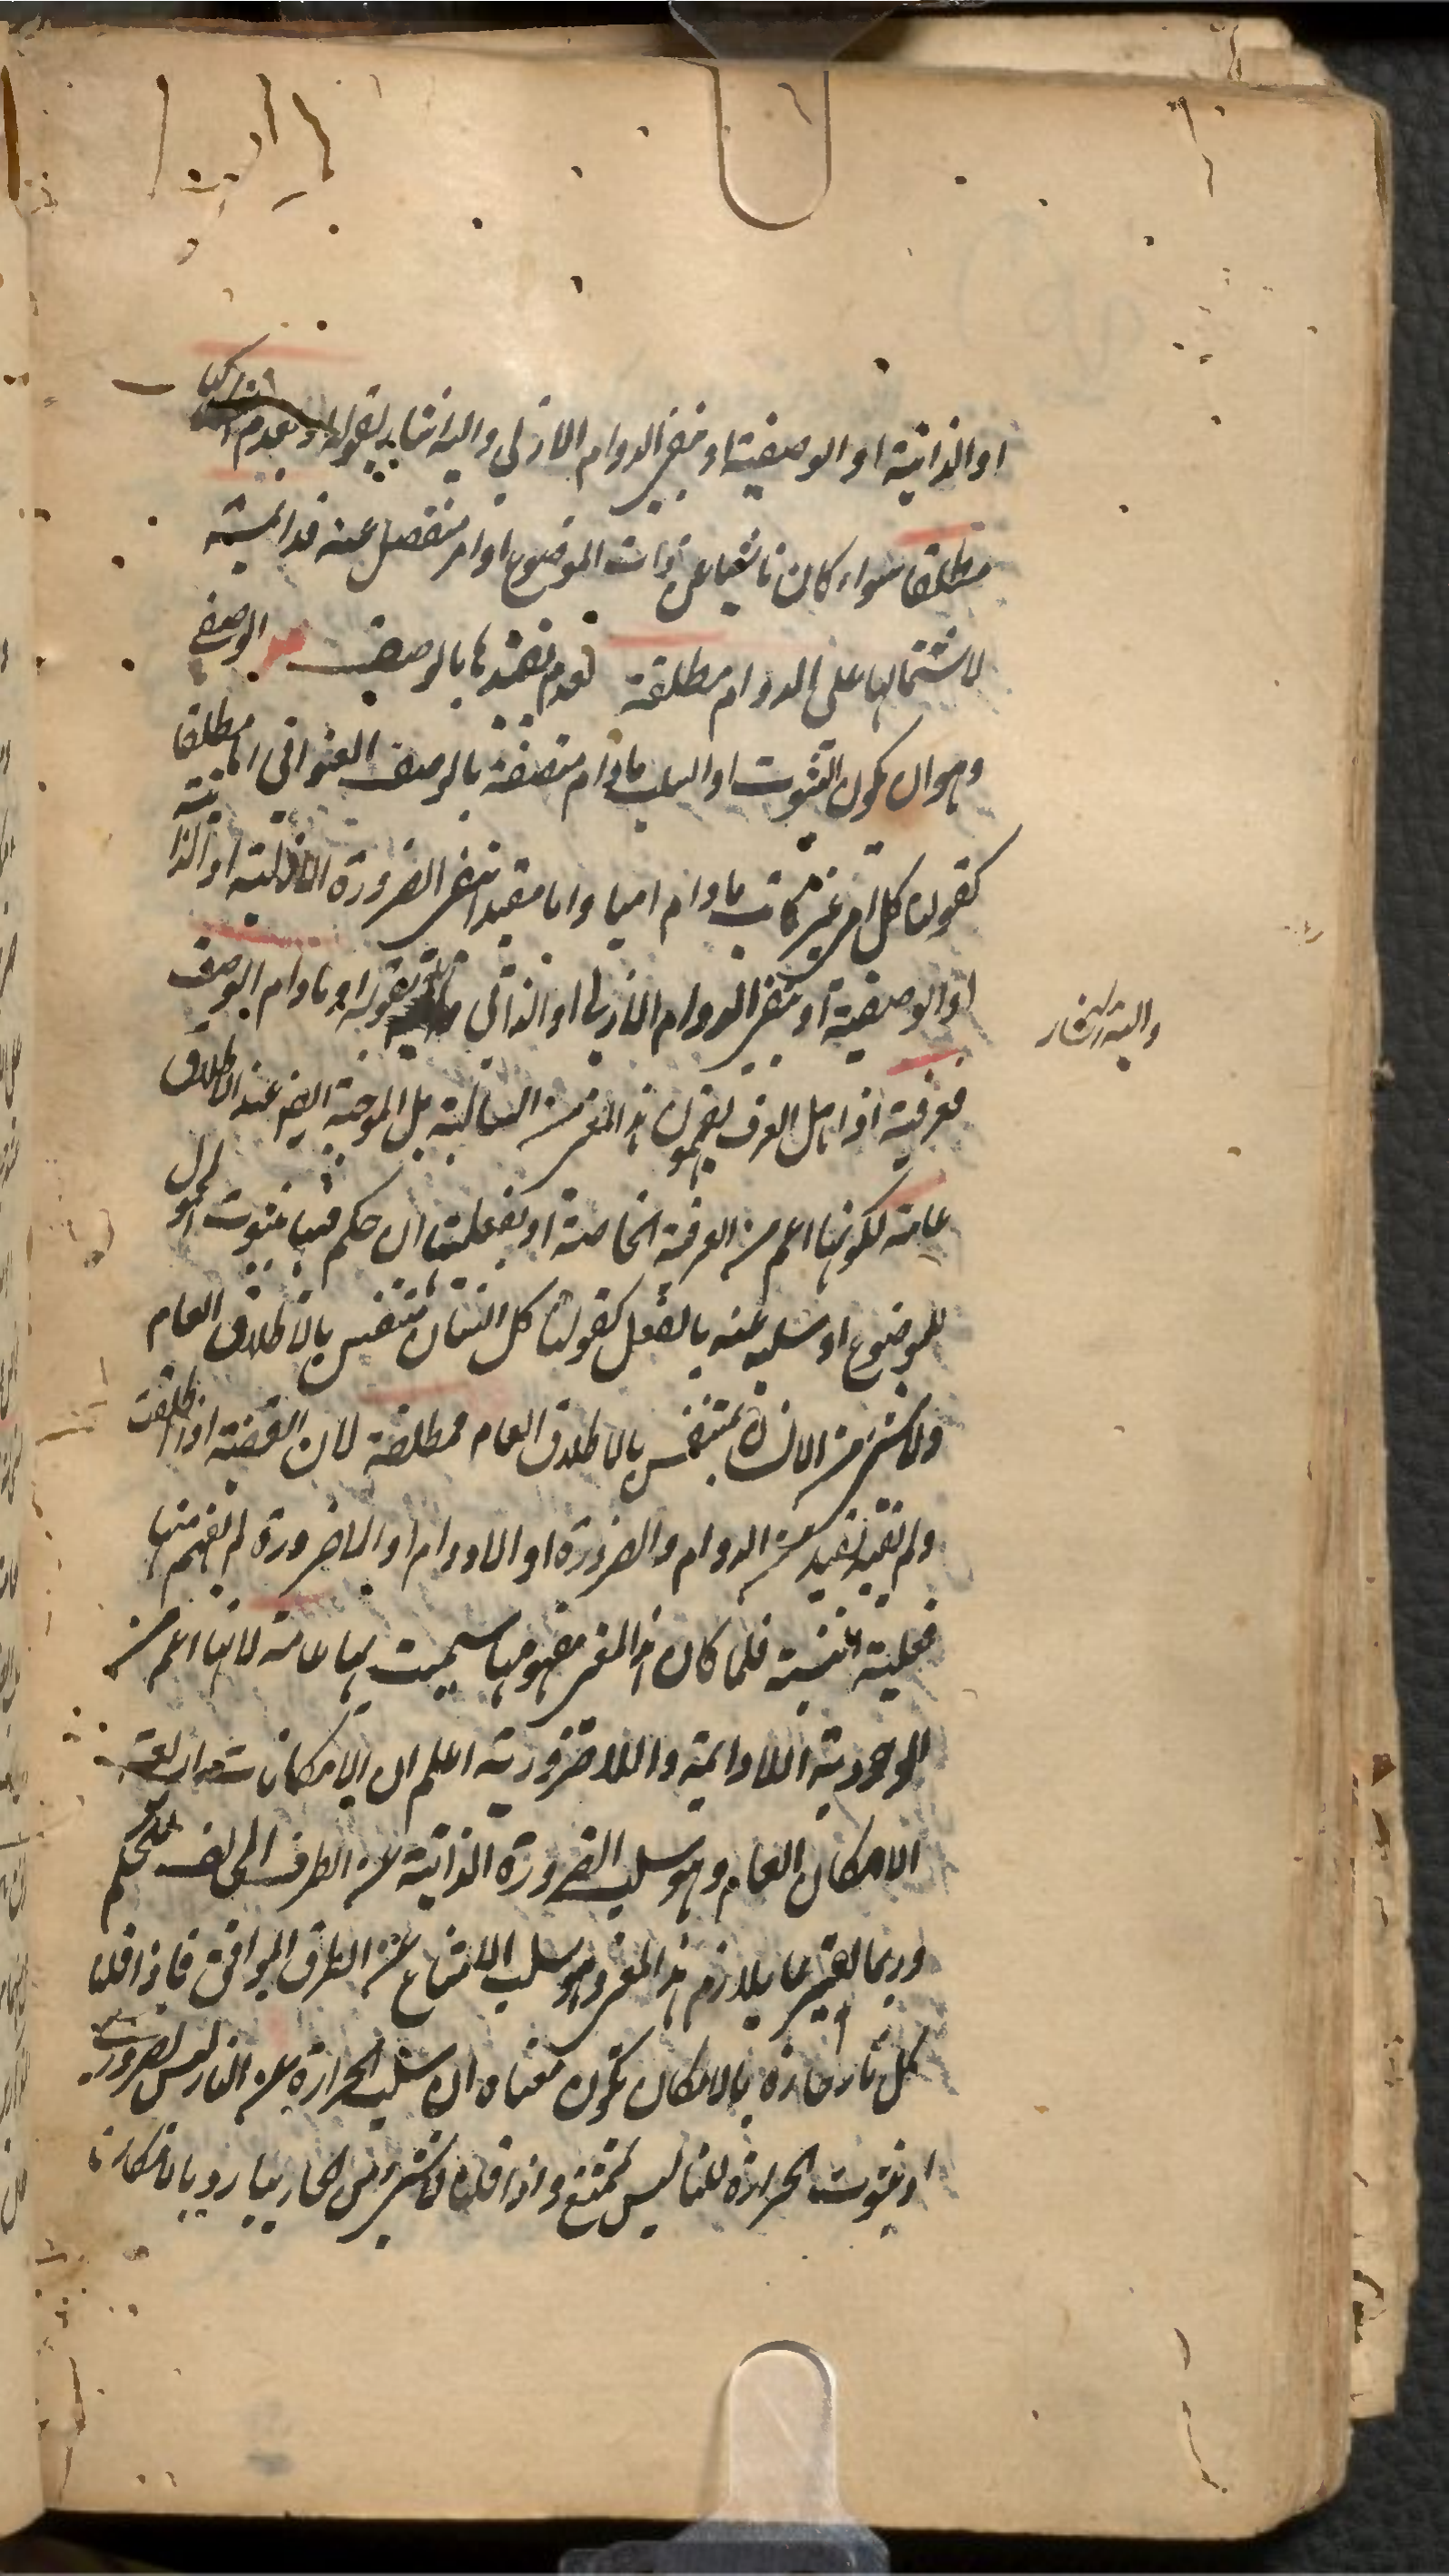 او الذاتية او الوصفية او بنفى الدوام الازلى واليه اشار بقوله او بعدم انفكاكها
مطلقا سواء كان ناشيا عن ذات الموضوع او امر منفصل عنه فدائمة
لاشتمالها على الدوام مطلقة لعدم تقييدها بالوصف الوصفى
وهو ان يكون الثبوت او السلب مادام متصفة بالوصف العنوانى اما مطلقا
كقولنا كل امى غير كاتب مادام اميا واما مقيدا بنفى الضرورة الازلية او الذاتية
او الوصفية او بنفى الدوام الازلى او الذاتى بقوله او مادام الوصف
واليه اشار
فعرفية اذ اهل العرف يفهمون هذا المعنى من السالبة بل الموجبة ايض عند الاطلاق
عامة لكونها اعم من العرفية الخاصة او بفعليتها ان حكم فيها بثبوت المحمول
للموضوع او سلبه عنه بالفعل كقولنا كل انسان متنفس بالاطلاق العام
ولا شئ من الانسان بمتنفس بالاطلاق العام فمطلقة لان القضية اذا اطلقت
ولم تقيد بقيد من الدوام والضرورة او اللادوام او اللاضرورة لم يفهم منها
فعلية النسبة فلما كان هذا المعنى مفهومها سميت بها عامة لانها اعم من
الوجودية اللادائمة واللاضرورية اعلم ان الامكانات اربعة
الامكان العام وهو سلب الضرورة الذاتية عن الطرف المخالف للحكم
وربما يفسر بما يلازم هذا المعنى وهو سلب الامتناع عن الطرف الموافق فاذا قلنا
كل نار حارة بالامكان يكون معناه ان سلب الحرارة عن النار ليس بضرورى
او ثبوت الحرارة للنار ليس بممتنع واذا قلنا لا شئ من الحار ببارد بالامكان